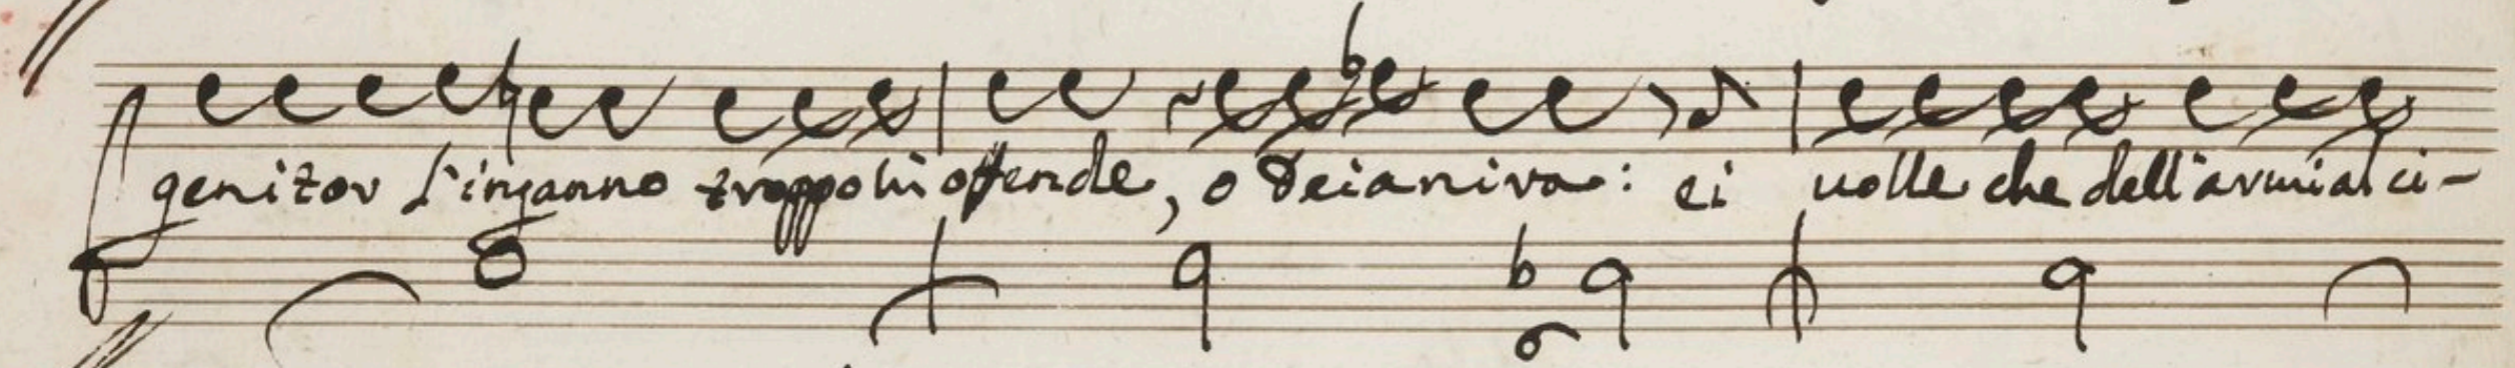 genitor L'inganno troppo lui offende, o Deianira: ei uolle che dell'armi al ci-